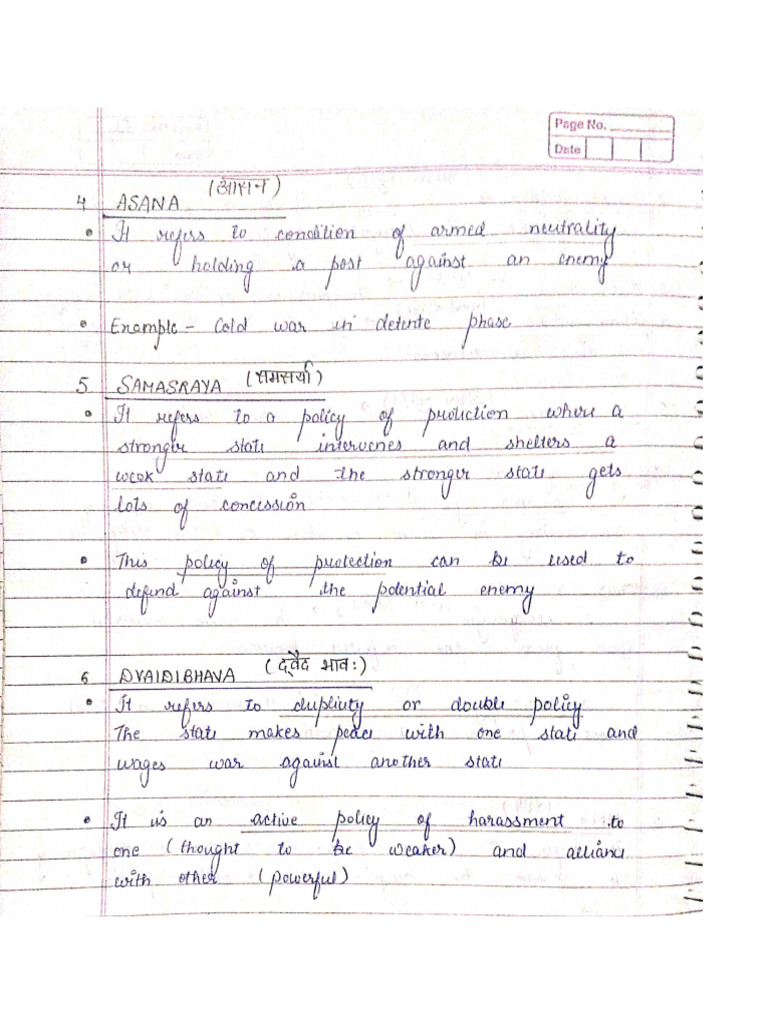 Page No.
Date
(आसन)
4 ASANA
• It refers to condition of armed neutrality
or holding a post against an enemy
• Example - Cold war in detente phase
5 SAMASRAYA (समसर्या)
• It refers to a policy of protection where a
stronger state intervenes and shelters a
weak state and the stronger state gets
lots of concession
• This policy of protection can be used to
defend against the potential enemy
6 DVAIDIBHAVA (द्वैद भावः)
• It refers to duplicity or double policy
The state makes peace with one state and
wages war against another state
• It is an active policy of harassment to
one (thought to be weaker) and alliance
with other (powerful)